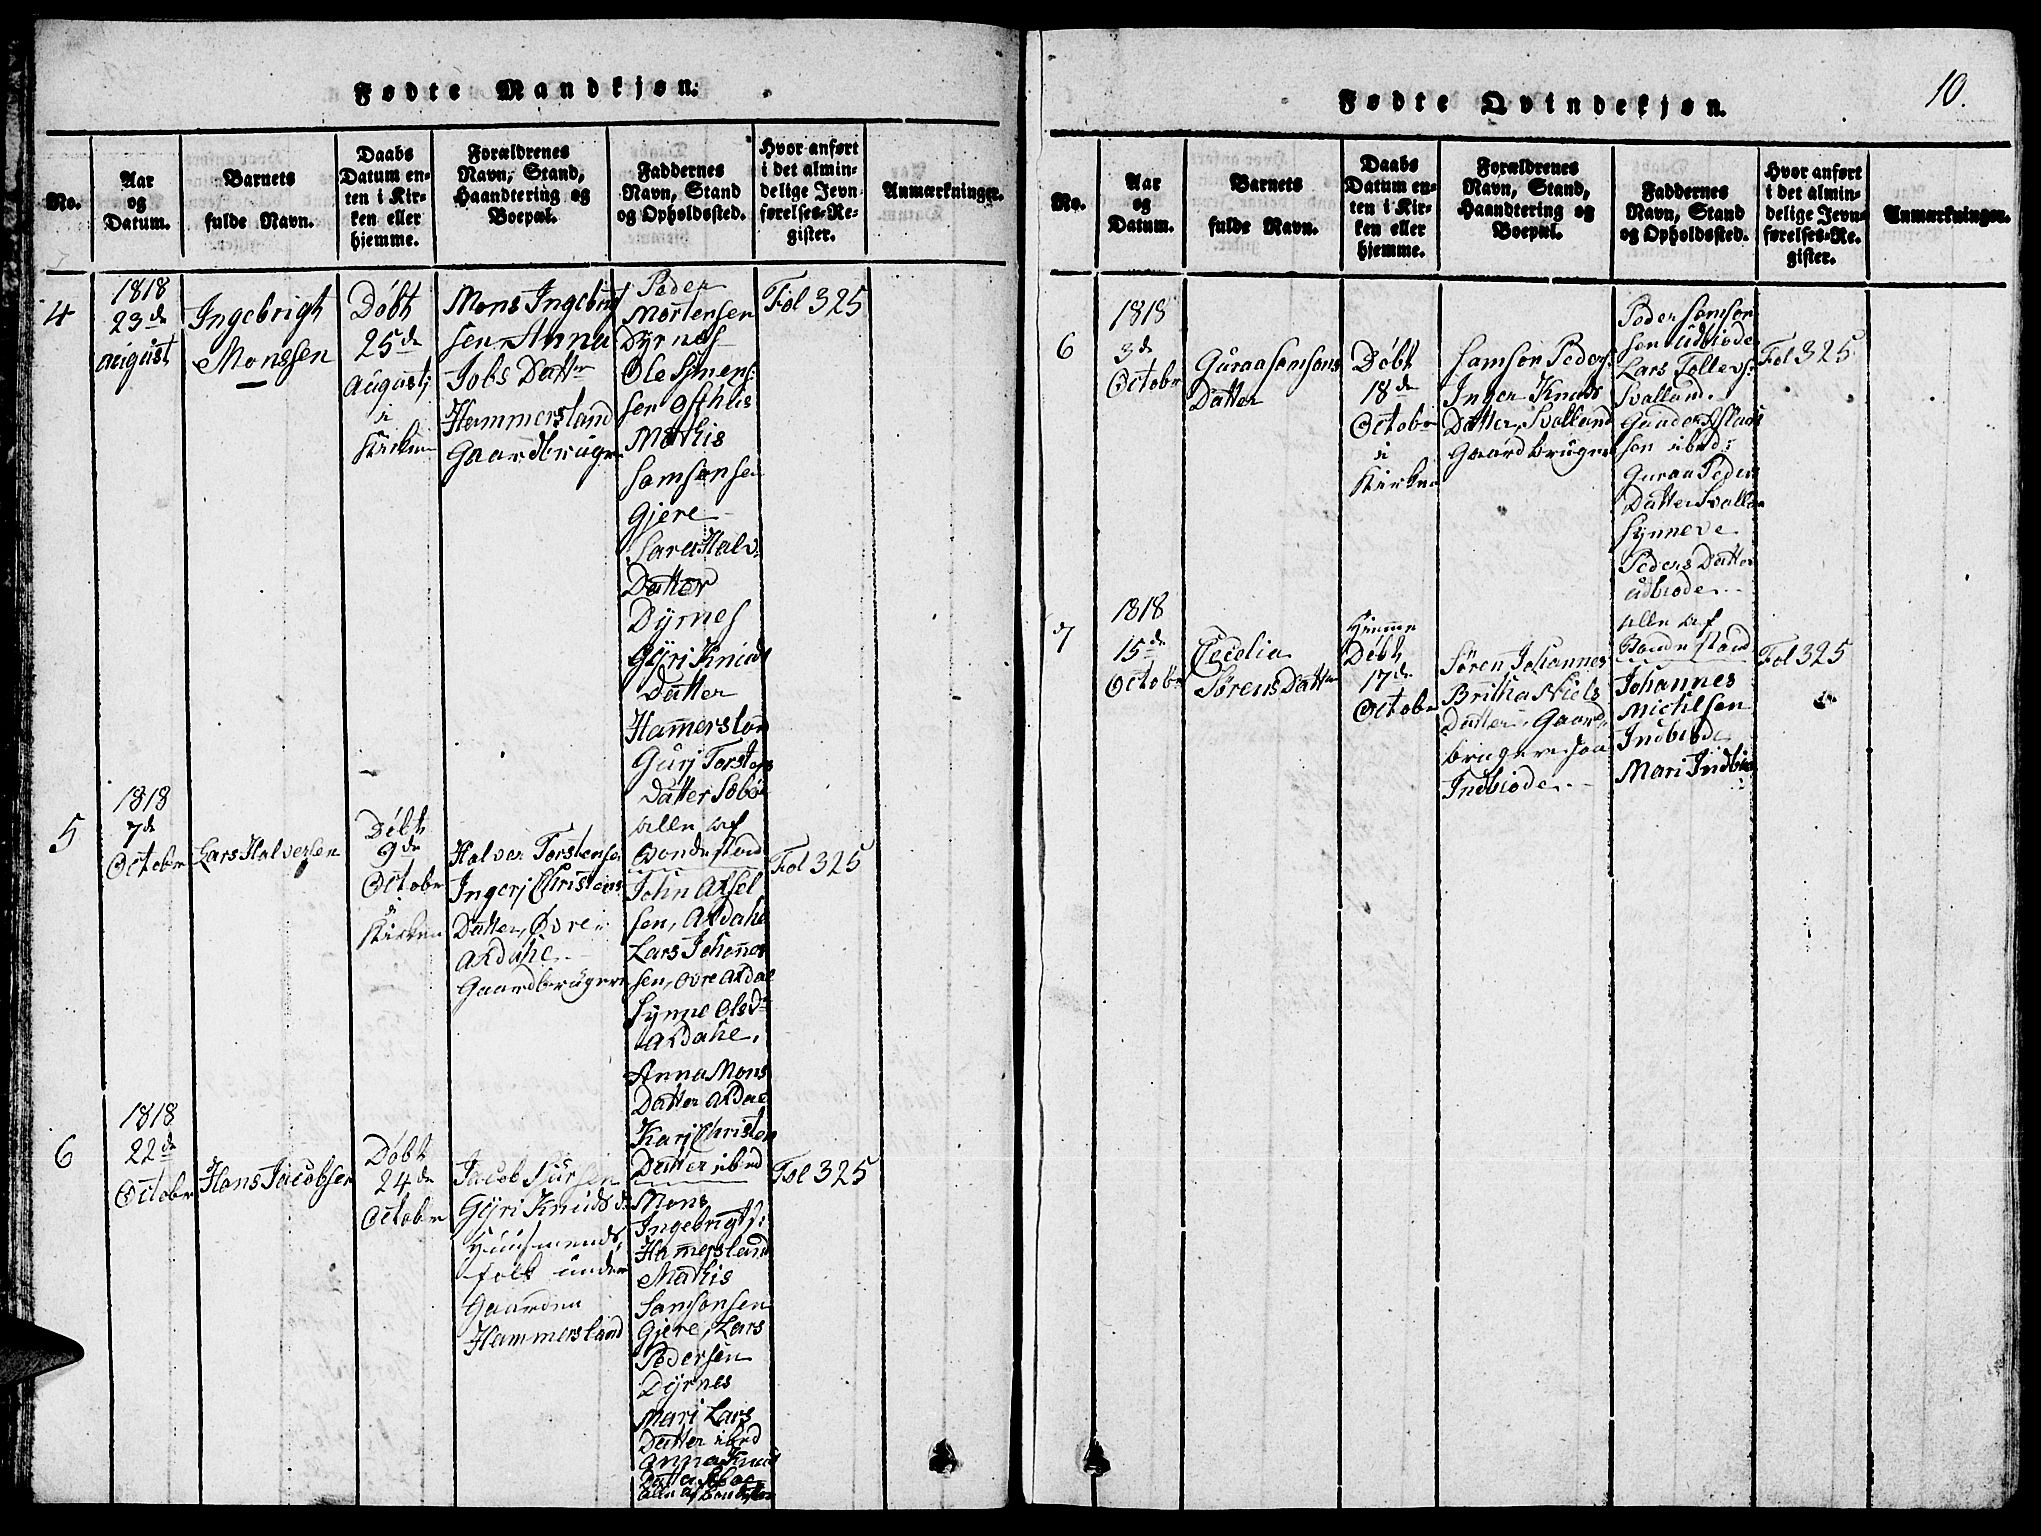 Fødte Mandkjøn.
No.
Aar
og
Datum.
Barnets
fulde Navn.
Daabs
Datum en-
ten i Kir-
ken eller
hjemme.
Forældrenes
Navn, Stand,
Haandtering og
Boepæl.
Faddernes
Navn, Stand
og Opholdssted.
Hvor anført
i det almin-
delige Jevn-
førelses-Re-
gister.
Anmærkninger.
4
1818
23de
august
Ingebrigt
Monssen
Døbt
25de
Augustj
i
Kirken
Mons Ingebrigt
sen Anna
Jobs Datter
Hammersland
Gaardbruger
Peder
Mortensen
Dyrnes
Ole Simens
sen Ofthus
Mathis
Samsonsen
Gjere
Sara Halv
Datter
Dyrnes
Gyri Knuds
Datter
Hamersland
Gurj Torstens
Datter Sebøe
alle af
Bondestand
Fol 325
5
1818
7de
Octobr
Lars Halversen
Døbt
9de
Octobr
i
Kirken
Halver Torstensen
Ingerj Christens
Datter, Øvre
Ardahe
Gaardbrugere
John Axsel
sen, Ardahe
Lars Johannes
sen, Øvre Ardae
Synne Olsdr
Ardahe.
Anna Mons
Datter Ardae
Karj Christen
Datter ibid
Fol 325
6
1818
22de
Octobr
Hans Jacobsen
Døbt
24de
Octobr
Jacob Siursen
Gyri Knudsd
Huusmends
folk under
Gaarden
Hammersland
Mons
Ingebrigts:
Hamersland
Mathis
Samsonsen
Gjere, Lars
Pedersen
Dyrnes
Mari Lars
Datter ibid
Anna Knuds
Datter
alle af Bondestan
Fol 325
Fødte Qvindekjøn.
10.
No.
Aar
og
Datum.
Barnets
fulde Navn.
Daabs
Datum en-
ten i Kir-
ken eller
hjemme.
Forældrenes
Navn, Stand,
Haandtering og
Boepæl.
Faddernes
Navn, Stand
og Opholdssted.
Hvor anført
i det almin-
delige Jevn-
førelses-Re-
gister.
Anmærkninger.
6
1818
3de
Octobr
Guraa Samsons
Datter
Døbt
18de
Octobr
i
Kirken
Samson Peders:
Inger Knuds
Datter, Svalland
Gaardbrugere
Peder Samson
sen Udbiode
Lars Tollevs:
Svalland.
Gunder Aslac
sen ibid:
Guraa Peders
Datter Svallan
Synneve
Peders Datter
Udbiode
alle af
Bondestand
Fol 325
7
1818
15de
Octobr
Cecelia
Sørens Datter
Hiemme
Døbt
17de
Octobr
Søren Johannes
Britha Niels
Datter Gaard
brugere paa
Indbiode
Johannes
Michelsen
Indbiode
Mari Indbio
Fol 325